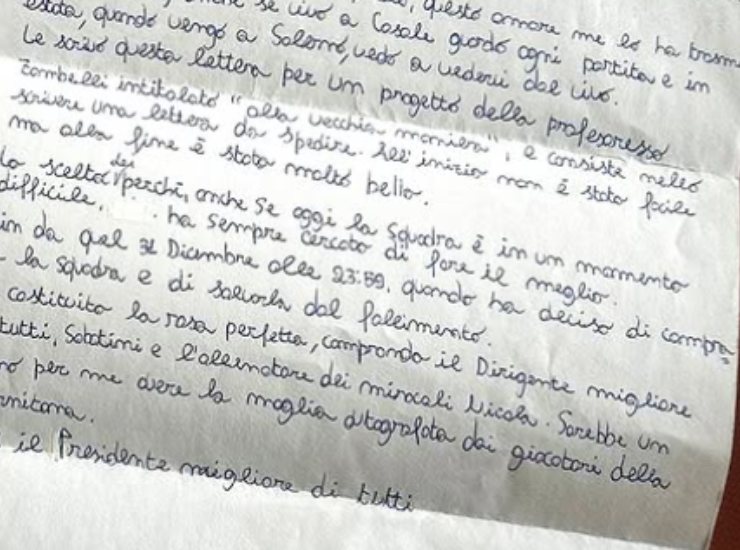 , anche se vivo a Casale guardo ogni partita e in
questo amore me lo ha trasm
estate, quando vengo a Salerno, vedo a vedervi dal vivo.
Le scrivo questa lettera per un progetto della professoressa
Zambelli intitolato "alla vecchia maniera", e consiste nello
scrivere una lettera da spedire. All'inizio non è stato facile
ma alla fine è stato molto bello.
la scelta dei perchè, anche se oggi la squadra è in un momento
difficile, ha sempre cercato di fare il meglio.
in da quel 31 Dicembre alle 23:59, quando ha deciso di compra-
la squadra e di salvarla dal fallimento.
costituito la rosa perfetta, comprando il Dirigente migliore
tutti, Sabatini e l'allenatore dei miracoli Nicola. Sarebbe un
no per me avere la maglia autografata dai giocatori della
rnitana.
il Presidente migliore di tutti